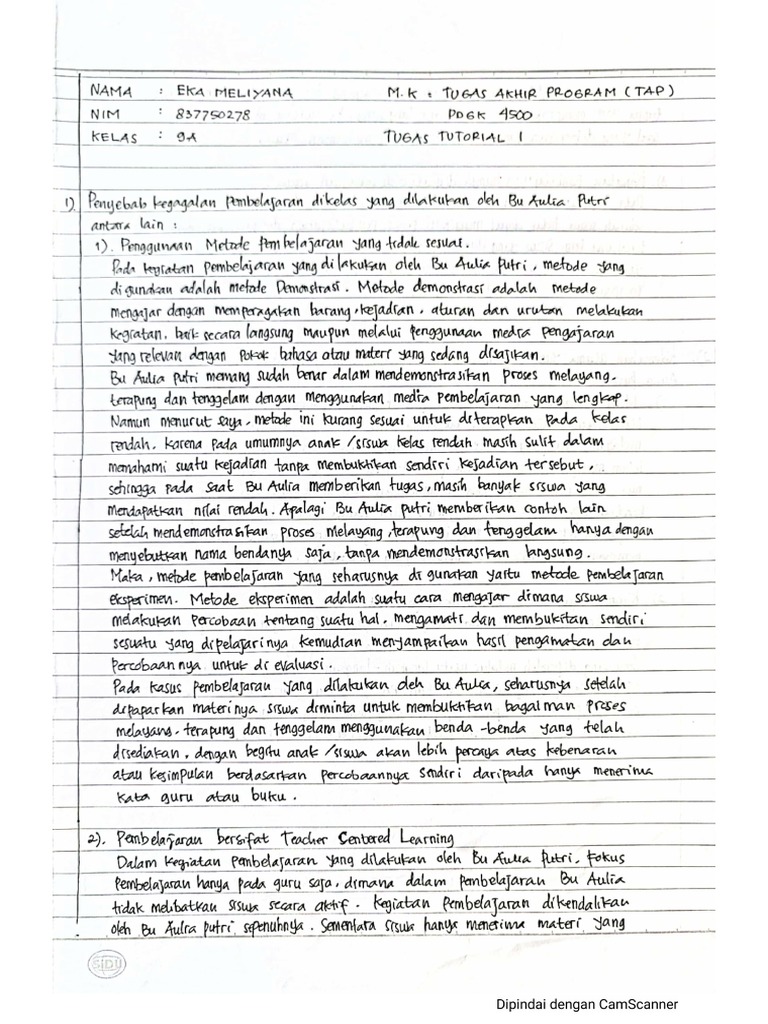 NAMA : EKA MELIYANA M.K : TUGAS AKHIR PROGRAM (TAP)
NIM : 837750278 PDGK 4500
KELAS : 9A TUGAS TUTORIAL 1
1) Penyebab kegagalan Pembelajaran dikelas yang dilakukan oleh Bu Aulia Putri
antara lain :
1). Penggunaan Metode Pembelajaran yang tidak sesuai.
Pada kegiatan pembelajaran yang dilakukan oleh Bu Aulia Putri, metode yang
digunakan adalah metode Demonstrasi. Metode demonstrasi adalah metode
mengajar dengan memperagakan barang, kejadian, aturan dan urutan melakukan
kegiatan, baik secara langsung maupun melalui penggunaan media pengajaran
yang relevan dengan pokok bahasa atau materi yang sedang disajikan.
Bu Aulia Putri memang sudah benar dalam mendemonstrasikan proses melayang,
terapung dan tenggelam dengan menggunakan media pembelajaran yang lengkap.
Namun menurut saya, metode ini kurang sesuai untuk diterapkan pada kelas
rendah, karena pada umumnya anak /siswa kelas rendah masih sulit dalam
memahami suatu kejadian tanpa membuktikan sendiri kejadian tersebut,
sehingga pada saat Bu Aulia memberikan tugas, masih banyak siswa yang
mendapatkan nilai rendah. Apalagi Bu Aulia putri memberikan contoh lain
setelah mendemonstrasikan proses melayang, terapung dan tenggelam hanya dengan
menyebutkan nama bendanya saja, tanpa mendemonstrasikan langsung.
Maka, metode pembelajaran yang seharusnya di gunakan yaitu metode pembelajaran
eksperimen. Metode eksperimen adalah suatu cara mengajar dimana siswa
melakukan percobaan tentang suatu hal, mengamati dan membukitan sendiri
sesuatu yang dipelajarinya kemudian menyampaikan hasil pengamatan dan
percobaan nya untuk di evaluasi.
Pada kasus pembelajaran yang dilakukan oleh Bu Aulia, seharusnya setelah
dipaparkan materinya siswa diminta untuk membuktikan bagaiman proses
melayang, terapung dan tenggelam menggunakan benda -benda yang telah
disediakan, dengan begitu anak /siswa akan lebih percaya atas kebenaran
atau kesimpulan berdasarkan percobaannya sendiri daripada hanya menerima
kata guru atau buku.
2). Pembelajaran bersifat Teacher Centered Learning
Dalam kegiatan pembelajaran yang dilakukan oleh Bu Aulia Putri, Fokus
pembelajaran hanya pada guru saja, dimana dalam pembelajaran Bu Aulia
tidak melibatkan siswa secara aktif. Kegiatan Pembelajaran dikendalikan
oleh Bu Aulia Putri sepenuhnya. Sementara siswa hanya menerima materi yang
SIDU
Dipindai dengan CamScanner